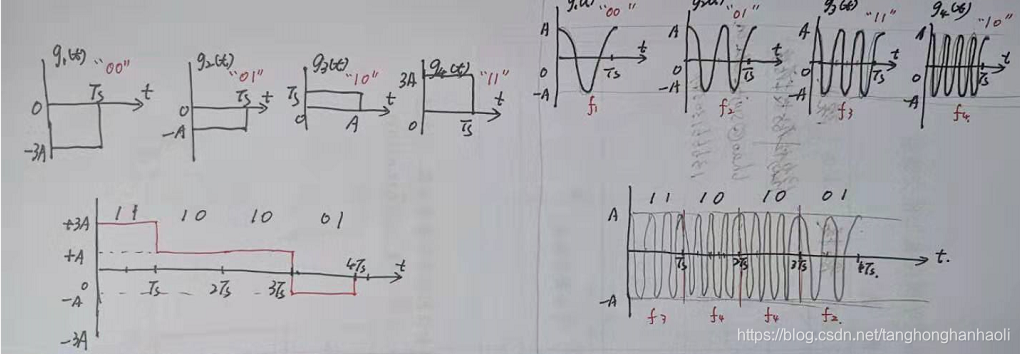 g₁(t) "00"
0 Ts t
-3A
g₂(t) "01"
0 Ts t
-A
g₃(t) "10"
Ts
0 A t
g₄(t) "11"
3A
0 Ts t
+3A 11 10 10 01
+A
0 Ts 2Ts 3Ts 4Ts t
-A
-3A
g₁(t) "00"
A
0 Ts t
-A f₁
g₂(t) "01"
A
0 Ts t
-A f₂
g₃(t) "11"
A
0 Ts t
-A f₃
g₄(t) "10"
A
0 Ts t
-A f₄
11 10 10 01
A
Ts 2Ts 3Ts 4Ts t.
-A
f₃ f₄ f₄ f₂
https://blog.csdn.net/tanghonghanhaoli